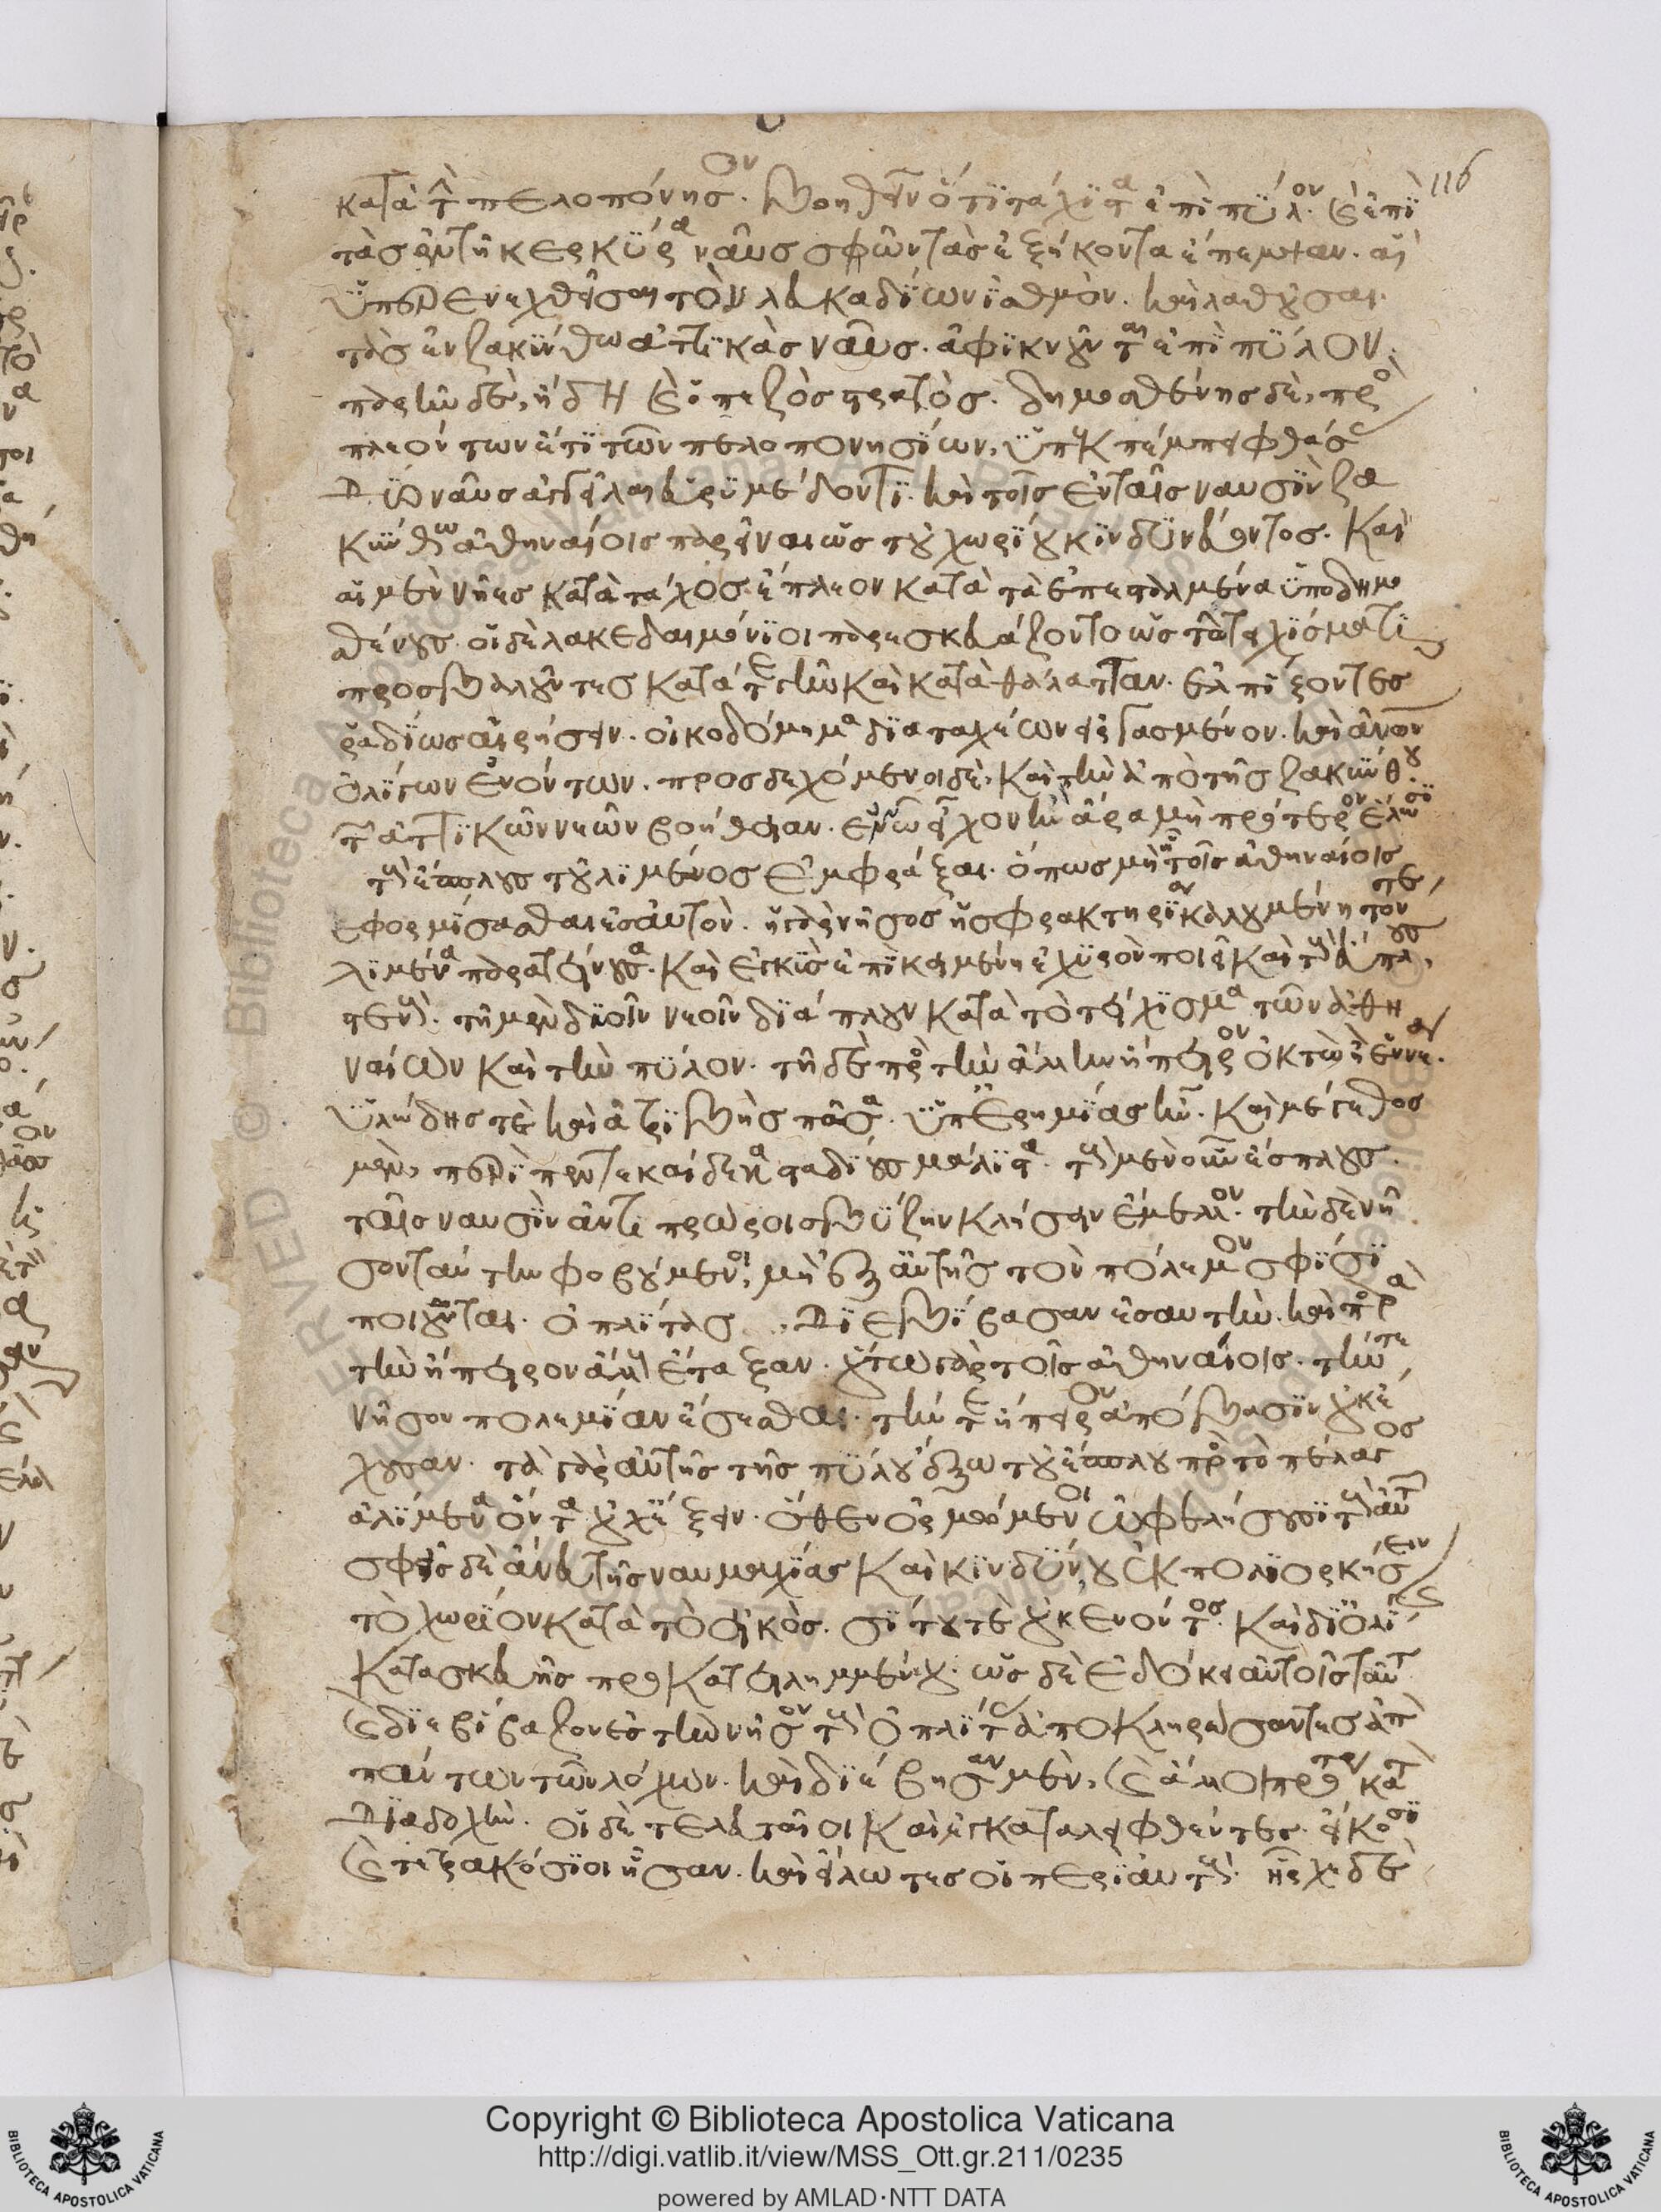 116
κατὰ τὴν πελοπόννησον. βοηθεῖν ὅτι τάχιστα ἐπὶ πύλον. καὶ ἐπὶ
τὰς ἐν τῇ κερκύρα ναῦς σφῶν τὰς ἑξήκοντα ἔπεμψαν. αἳ
ὑπερενεχθεῖσαι τὸν λευκαδίων ἰσθμὸν. καὶ λαθοῦσαι
τὰς ἐν ζακύνθω ἀττικὰς ναῦς. ἀφικνοῦνται ἐπὶ πύλον.
παρῆν δὲ, ἤδη καὶ ὁ πεζὸς στρατὸς. δημοσθένης δὲ, προσ
πλεόντων ἔτι τῶν πελοπονησίων, ὑπεκπέμπει φθάσας
δύο ναῦς ἀγγεῖλαι εὐρυμέδοντι. καὶ τοῖς ἐν ταῖς ναυσὶν ζα
κύνθω ἀθηναίοις παρεῖναι ὡς τοῦ χωρίου κινδυνεύοντος. καὶ
αἱ μὲν νῆες κατὰ τάχος ἔπλεον κατὰ τὰ ἐπεσταλμένα ὑπὸ δημο
σθένους. οἱ δὲ λακεδαιμόνιοι παρεσκευάζοντο ὡς τῶ τειχίσματι
προσβαλοῦντες κατά τε γῆν καὶ κατὰ θάλατταν. ἐλπίζοντες
ῥαδίως αἱρήσειν. οἰκοδόμημα διαταχέων εἰργασμένον. καὶ ἀνῶν
ὀλίγων ἐνόντων. προσδεχόμενοι δὲ, καὶ τὴν ἀπὸ τῆς ζακύνθου
τῶν ἀττικῶν νεῶν βοήθειαν. ἐν νῶ εἶχον ἢν ἄρα μὴ πρότερον ἕλωσι
τοὺς ἔσπλους τοῦ λιμένος ἐμφράξαι. ὅπως μὴ ἦ τοῖς ἀθηναίοις
ἐφορμίσασθαι ἐς αὐτὸν. ἡ γὰρ νῆσος ἡ σφακτηρία καλουμένη τόν τε
λιμένα παρατείνουσα. καὶ ἐγγὺς ἐπικειμένη ἐχυρὸν ποιεῖ καὶ τοὺς ἔσπλους
στενοὺς. τῇ μὲν δυοῖν νεοῖν διάπλουν κατὰ τὸ τείχισμα τῶν ἀθη
ναίων καὶ τὴν πύλον. τῇ δὲ πρὸς τὴν ἄλλην ἤπειρον ὀκτὼ ἢ ἐννέα.
ὑλώδης τὲ καὶ ἀτριβὴς πᾶσα ὑπ' ἐρημίας ἦν. καὶ μέγεθος
μὲν, περὶ πεντεκαίδεκα σταδίους μάλιστα. τοὺς μὲν οὖν ἔσπλους.
ταῖς ναυσὶν ἀντιπρώροις βύζην κλήσειν ἔμελλον. τὴν δὲ νῆ
σον ταύτην φοβούμενοι, μὴ ἐξ αὐτῆς τὸν πόλεμον σφίσι
ποιοῦνται. ὁπλίτας διεβίβασαν ἐς αυτὴν. καὶ παρὰ
τὴν ἤπειρον ἄλλους ἔταξαν. οὕτω γὰρ τοῖς ἀθηναίοις. τήν τε
νῆσον πολεμίαν ἔσεσθαι. τήν τε ἤπειρον ἀπόβασιν οὐκ ἔ
χουσαν. τὰ γὰρ αὐτῆς τῆς πύλου ἔξω τοῦ ἔσπλου πρὸς τὸ πέλαγος
ἀλίμενα ὄντα οὐχ ἕξειν. ὅθεν ὁρμώμενοι ὠφελήσουσι τοὺς αὐτῶν
σφεῖς δὲ ἄνευ τῆς ναυμαχίας καὶ κινδύνου ἐκπολιορκήσειν
τὸ χωρίον κατὰ τὸ εἰκὸς. σίτου τὲ οὐκ ἐνόντος. καὶ δι' ὀλίγης
κατασκευῆς προκατειλημμένου. ὡς δὲ ἐδόκει αὐτοῖς ταῦτα
καὶ διεβίβαζον ἐς τὴν νῆσον τοὺς ὁπλίτας ἀποκληρώσαντες ἀπὸ
πάντων τῶν λόχων. καὶ διέβησαν μὲν, καὶ ἄλλοι πρότερον κατὰ
διαδοχὴν. οἱ δὲ τελευταῖοι καὶ ἐγκαταλειφθέντες. εἴκοσι
καὶ τετρακόσιοι ἦσαν. καὶ εἵλωτες οἱ περὶ αὐτοὺς. ἦρχε δὲ
Copyright © Biblioteca Apostolica Vaticana
http://digi.vatlib.it/view/MSS_Ott.gr.211/0235
powered by AMLAD·NTT DATA